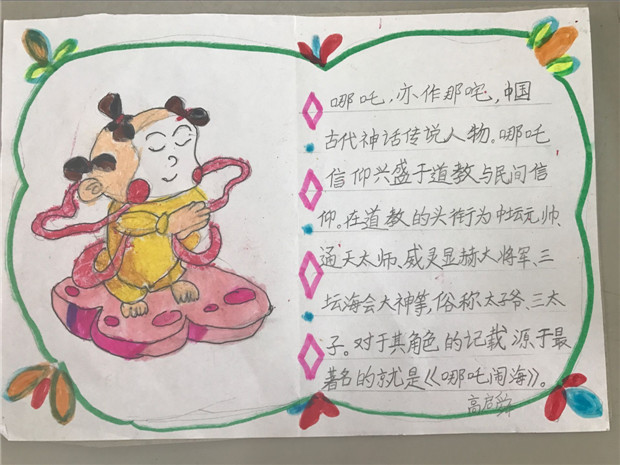 哪吒,亦作那咤,中国
古代神话传说人物。哪吒
信仰兴盛于道教与民间信
仰。在道教的头衔为中坛元帅、
通天太师、威灵显赫大将军、三
坛海会大神等,俗称太子爷、三太
子。对于其角色的记载源于最
著名的就是《哪吒闹海》。
高启